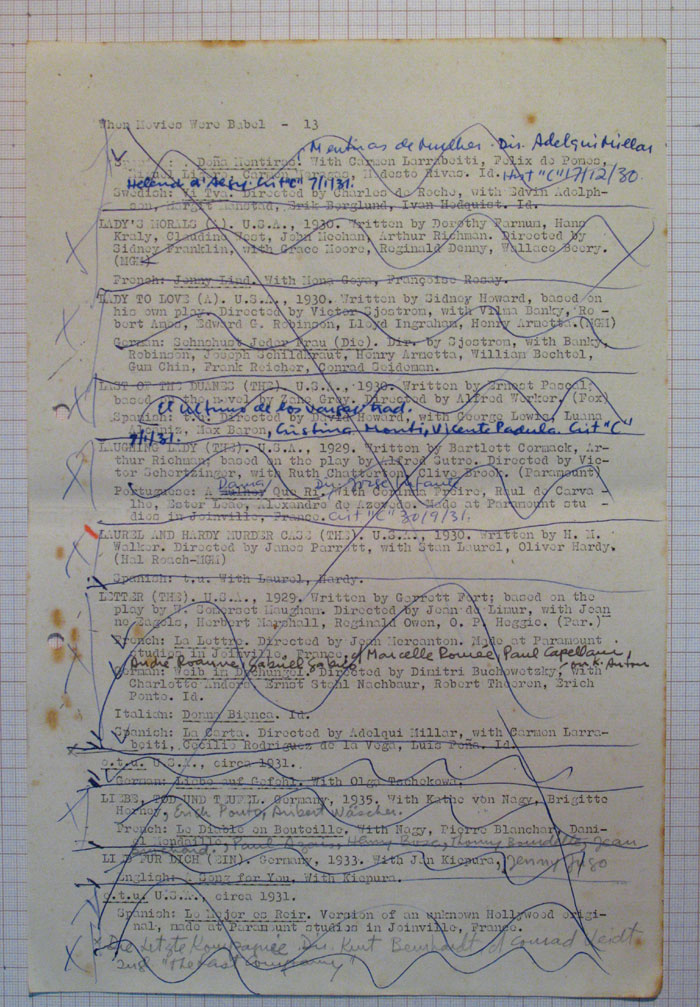 When Movies Were Babel - 13
Mentiras de Mulher. Dir. Adelqui Millar
Spanish: Doña Mentiras. With Carmen Larrabeiti, Felix de Pomes,
Miguel Ligero, Carmen Moragas, Modesto Rivas. Id. "C" 17/12/30.
"C" 7/1/31.
Swedish: Vi Tva. Directed by Charles de Roche, with Edvin Adolph-
son, Erik Berglund, Ivan Hedquist. Id.
LADY'S MORALS (A). U.S.A., 1930. Written by Dorothy Farnum, Hans
Kraly, Claudine West, John Meehan, Arthur Richman. Directed by
Sidney Franklin, with Grace Moore, Reginald Denny, Wallace Beery.
(MGM)
French: Jenny Lind. With Mona Goya, Françoise Rosay.
LADY TO LOVE (A). U.S.A., 1930. Written by Sidney Howard, based on
his own play. Directed by Victor Sjostrom, with Vilma Banky, Ro-
bert Ames, Edward G. Robinson, Lloyd Ingraham, Henry Armetta.(MGM)
German: Sehnshust Jeder Frau (Die). Dir. by Sjostrom, with Banky,
Robinson, Joseph Schildkraut, Henry Armetta, William Bechtel,
Gum Chin, Frank Reicher, Conrad Seideman.
LAST OF THE DUANES (THE). U.S.A., 1930. Written by Ernest Pascal;
based on the novel by Zane Grey. Directed by Alfred Werker. (Fox)
El ultimo de los vargas
Spanish: t.u. Directed by David Howard, with George Lewis, Luana
Alcañiz, Max Baron, Cristina Montt, Vicente Padula. "C"
9/1/31.
LAUGHING LADY (THE). U.S.A., 1929. Written by Bartlett Cormack, Ar-
thur Richman; based on the play by Alfred Sutro. Directed by Vic-
tor Schertzinger, with Ruth Chatterton, Clive Brook. (Paramount)
Dama Dir. Jorge Infante
Portuguese: A Mulher Que Ri. With Corinna Freire, Raul de Carva -
lho, Ester Leão, Alexandre de Azevedo. Made at Paramount stu -
dios in Joinville, France. "C" 30/9/31.
LAUREL AND HARDY MURDER CASE (THE). U.S.A., 1930. Written by H. M.
Walker. Directed by James Parrott, with Stan Laurel, Oliver Hardy.
(Hal Roach-MGM)
Spanish: t.u. With Laurel, Hardy.
LETTER (THE). U.S.A., 1929. Written by Garrett Fort; based on the
play by W. Somerset Maugham. Directed by Jean de Limur, with Jean
ne Eagels, Herbert Marshall, Reginald Owen, O. P. Heggie. (Par.)
French: La Lettre. Directed by Jean Mercanton. Made at Paramount
studios in Joinville, France. Marcelle Romée, Paul Capellani,
André Roanne, Gabriel Gabrio, K. Anton
German: Weib im Dschungel. Directed by Dimitri Buchowetzky, with
Charlotte Anders, Ernst Stahl Nachbaur, Robert Thoeren, Erich
Ponto. Id.
Italian: Donna Bianca. Id.
Spanish: La Carta. Directed by Adelqui Millar, with Carmen Larra-
beiti, Cecilio Rodriguez de la Vega, Luis Peña. Id.
o.t.u. U.S.A., circa 1931.
German: Liebe auf Befehl. With Olga Tschekowa.
LIEBE, TOD UND TEUFEL. Germany, 1935. With Kathe von Nagy, Brigitte
Horney, Erich Ponto, Aribert Wäscher.
French: Le Diable en Bouteille. With Nagy, Pierre Blanchar, Dani-
el Mendaille, Paul Azais, Henry Bosc, Thommy Bourdelle, Jean
LIED FÜR DICH (EIN). Germany, 1933. With Jan Kiepura, Jenny Jugo
English: A Song for You. With Kiepura.
o.t.u. U.S.A., circa 1931.
Spanish: Lo Mejor es Reir. Version of an unknown Hollywood origi-
nal, made at Paramount studios in Joinville, France.
Die Letzte Kompagnie Dir. Kurt Bernhardt Conrad Veidt
"The Last Company"